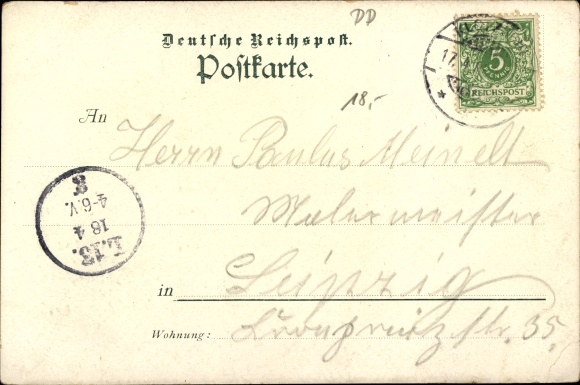 DD
Deutsche Reichspost.
Postkarte.
18,-
5
PFENNIG
REICHSPOST
An
Herrn Paulus Meinelt
Malermeister
in Leipzig
Wohnung: str. 35.
L.13.
18 4
4-6.V.
3